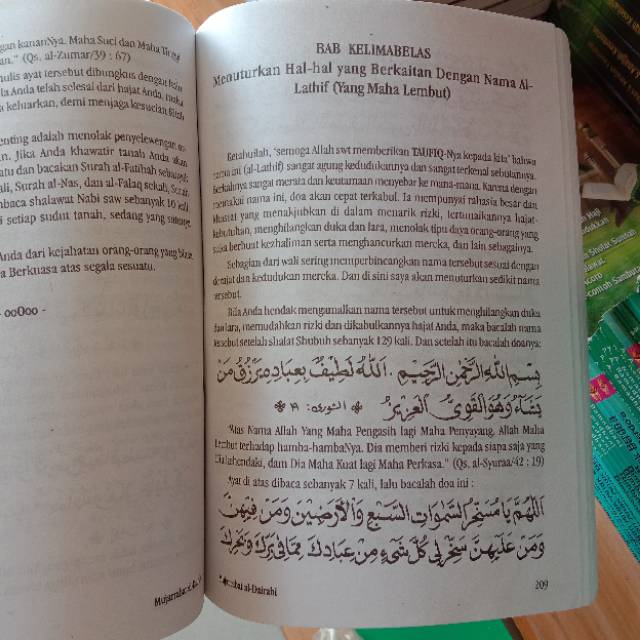 gan kananNya. Maha Suci dan Maha Tinggi
an." (Qs. al-Zumar/39 : 67)
nulis ayat tersebut dibungkus dengan
la Anda telah selesai dari hajat Anda, maka
a keluarkan, demi menjaga kesucian
enting adalah menolak penyelewengan
n. Jika Anda khawatir tanah Anda akan
atu dan bacakan Surah al-Fatihah sebanyak
ali, Surah al-Nas, dan al-Falaq sekali, Surah
mbaca shalawat Nabi saw sebanyak 10 kali
i setiap sudut tanah, sedang yang
Anda dari kejahatan orang-orang yang
a Berkuasa atas segala sesuatu.
- ooOoo -
BAB KELIMABELAS
Menuturkan Hal-hal yang Berkaitan Dengan Nama Al-
Lathif (Yang Maha Lembut)
Ketahuilah, 'semoga Allah swt memberikan TAUFIQ-Nya kepada kita' bahwa
nama ini (al-Lathif) sangat agung kedudukannya dan sangat terkenal sebutannya.
Berkahnya sangat merata dan keutamaan menyebar ke mana-mana. Karena dengan
memakai nama ini, doa akan cepat terkabul. Ia mempunyai rahasia besar dan
khasiat yang menakjubkan di dalam menarik rizki, tertunaikannya hajat-
kebutuhan, menghilangkan duka dan lara, menolak tipu daya orang-orang yang
suka berbuat kezhaliman serta menghancurkan mereka, dan lain sebagainya.
Sebagian dari wali sering memperbincangkan nama tersebut sesuai dengan
derajat dan kedudukan mereka. Dan di sini saya akan menuturkan sedikit nama
tersebut.
Bila Anda hendak mengamalkan nama tersebut untuk menghilangkan duka
dan lara, memudahkan rizki dan dikabulkannya hajat Anda, maka bacalah nama
tersebut setelah shalat Shubuh sebanyak 129 kali. Dan setelah itu bacalah doanya:
بِسْمِ اللهِ الرَّحْمٰنِ الرَّحِيْمِ . اَللهُ لَطِيْفٌ بِعِبَادِهِ يَرْزُقُ مَنْ
يَشَاءُ وَهُوَ الْقَوِيُّ الْعَزِيْزُ ﴿ الشورى : ١٩ ﴾
"Atas Nama Allah Yang Maha Pengasih lagi Maha Penyayang. Allah Maha
Lembut terhadap hamba-hambaNya. Dia memberi rizki kepada siapa saja yang
Dia kehendaki, dam Dia Maha Kuat lagi Maha Perkasa." (Qs. al-Syuraa/42 : 19)
Ayat di atas dibaca sebanyak 7 kali, lalu bacalah doa ini :
اَللّٰهُمَّ يَا مُسَخِّرَ السَّمٰوَاتِ السَّبْعِ وَالْأَرَضِيْنَ وَمَنْ فِيْهِنَّ
وَمَنْ عَلَيْهِنَّ سَخِّرْ لِي كُلَّ شَيْءٍ مِنْ عِبَادِكَ مِمَّا فِي بَرِّكَ وَبَحْرِكَ
Mujarrabat al-Dairabi
209